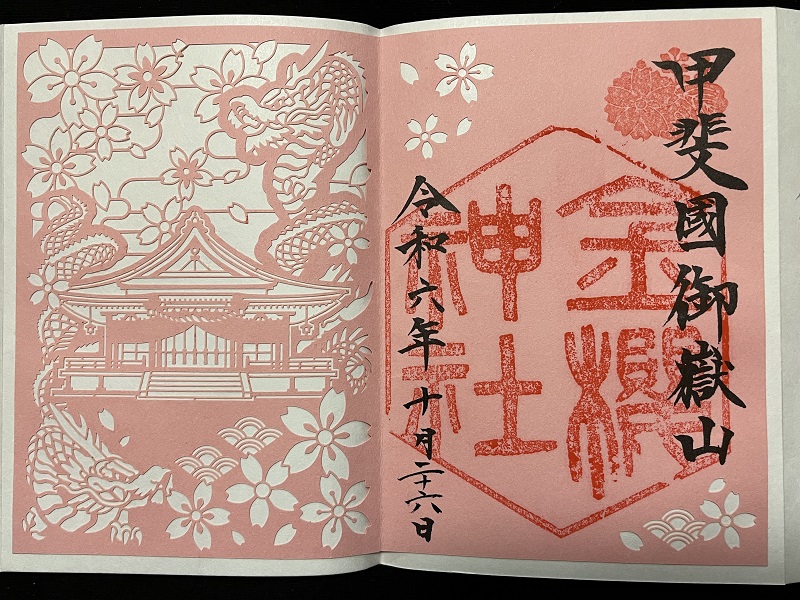 甲斐國御嶽山
金櫻
神社
令和六年十月二十六日